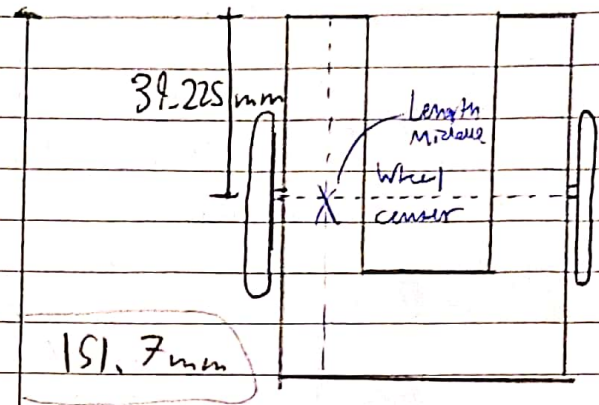 39.225 mm
Length
Middle
Wheel
center
151.7mm